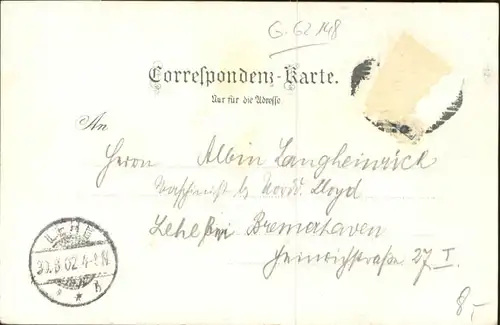 G.62148
Correspondenz-Karte.
Nur für die Adresse
An
Herrn Albin Langheinrich
b. Nordd. Lloyd
Lehe bei Bremerhaven
Heinrichstraße 27 I.
LEHE
30.8.02.4-5N
8,-